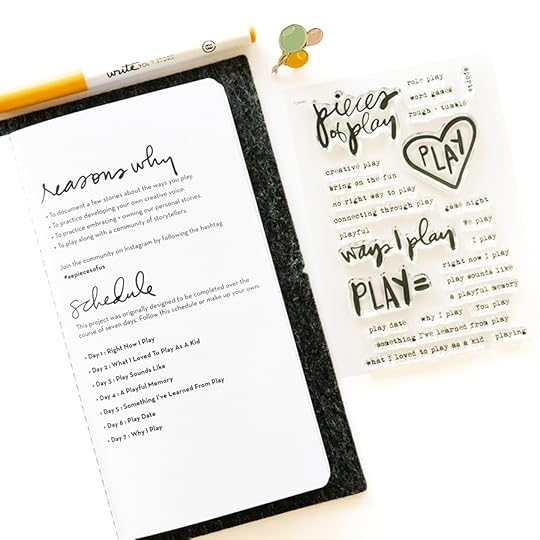 write YOUR STORY
reasons why
• To document a few stories about the ways you play.
• To practice developing your own creative voice.
• To practice embracing + owning our personal stories.
• To play along with a community of storytellers.
Join the community on Instagram by following the hashtag
#aepiecesofus
schedule
This project was originally designed to be completed over the
course of seven days. Follow this schedule or make up your own:
• Day 1 : Right Now I Play
• Day 2 : What I Loved To Play As A Kid
• Day 3 : Play Sounds Like
• Day 4 : A Playful Memory
• Day 5 : Something I've Learned From Play
• Day 6 : Play Date
• Day 7 : Why I Play
pieces
of play
role play
sports
word games
rough + tumble
PLAY
creative play
bring on the fun
no right way to play
connecting through play
game night
playful
We play
ways I play
I play
right now I play
PLAY=
play sounds like
a playful memory
play date
why I play
You play
something I've learned from play
what I loved to play as a kid
playing